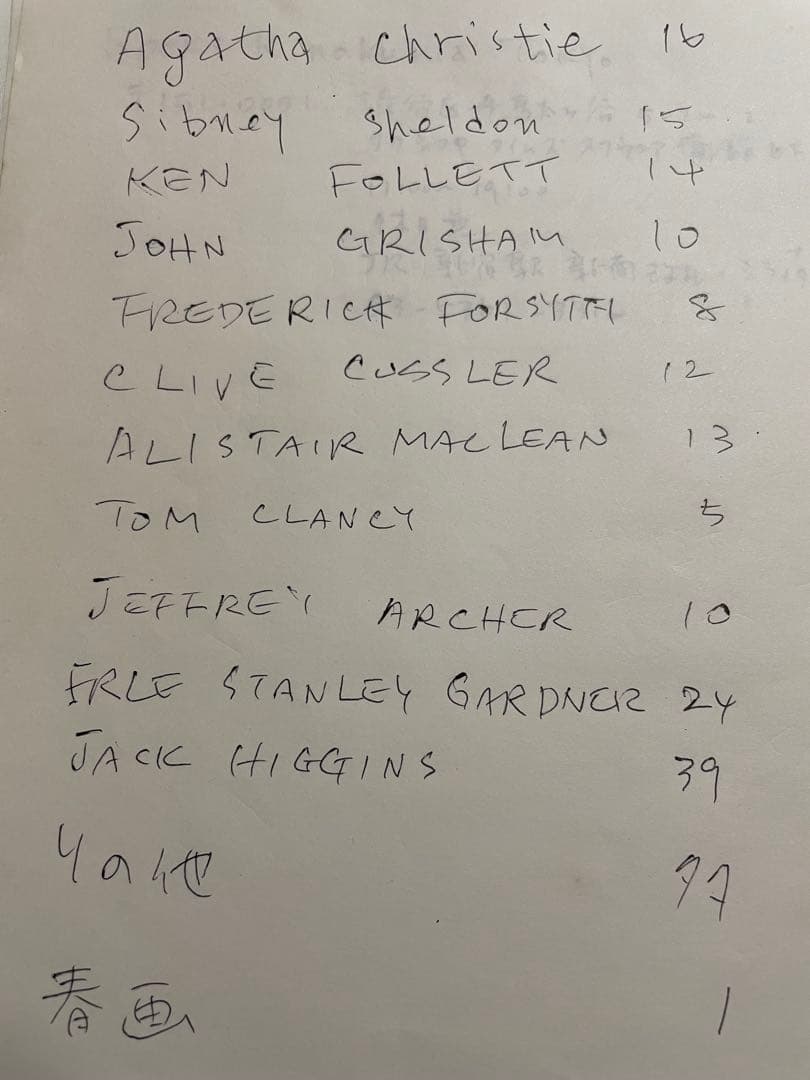 Agatha Christie 16
Sibney Sheldon 15
KEN FOLLETT 14
JOHN GRISHAM 10
FREDERICK FORSYTH 8
CLIVE CUSSLER 12
ALISTAIR MACLEAN 13
TOM CLANCY 5
JEFFREY ARCHER 10
ERLE STANLEY GARDNER 24
JACK HIGGINS 39
その他 77
春画 1